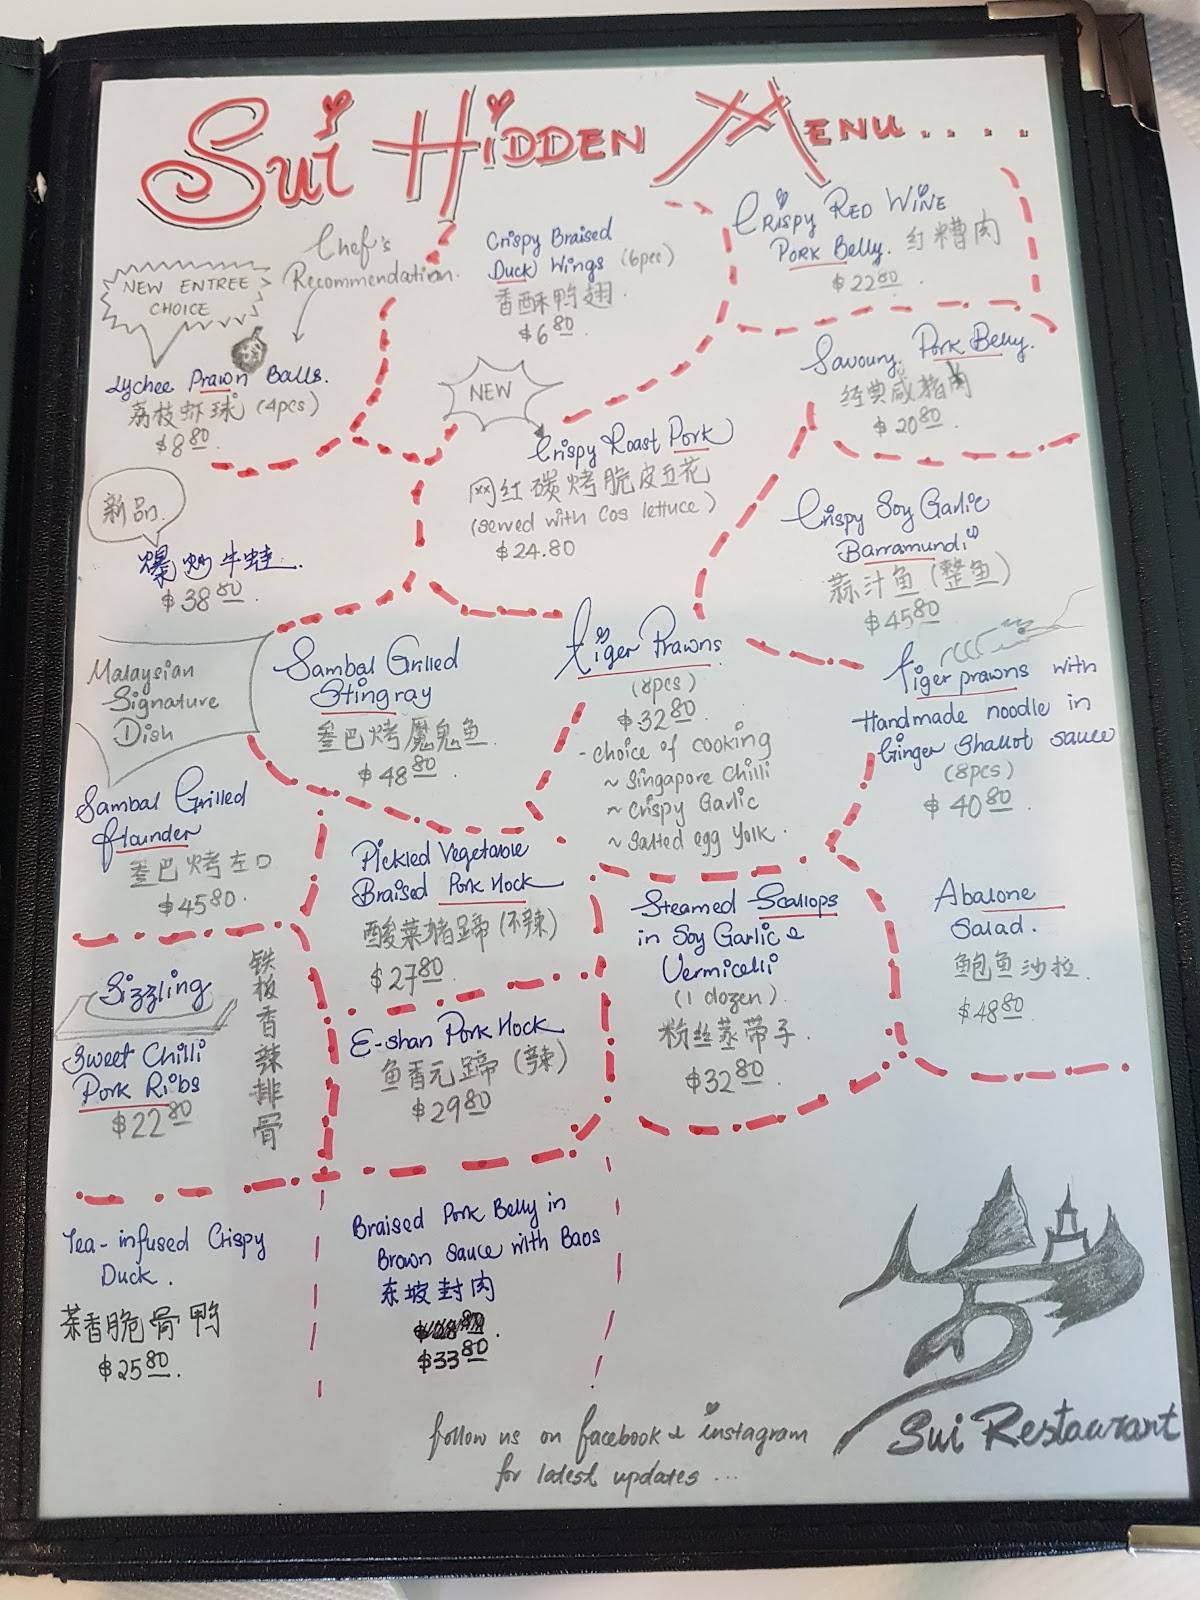 Sui Hidden Menu....
NEW ENTREE
CHOICE
Chef's
Recommendation.
Lychee Prawn Balls.
荔枝虾球 (4pcs)
$8.80.
Crispy Braised
Duck Wings (6pcs)
香酥鸭翅.
$6.80.
Crispy Red Wine
Pork Belly. 红糟肉
$22.80.
Savoury Pork Belly.
经典咸猪肉
$20.80.
NEW
Crispy Roast Pork
网红碳烤脆皮五花
(served with Cos lettuce)
$24.80
新品.
爆炒牛蛙.
$38.80.
Crispy Soy Garlic
Barramundi
蒜汁鱼 (整鱼)
$45.80
Malaysian
Signature
Dish
Sambal Grilled
Stingray
叁巴烤魔鬼鱼
$48.80.
Tiger Prawns
(8pcs)
$32.80
- choice of cooking
~ Singapore Chilli
~ Crispy Garlic
~ Salted egg yolk.
Tiger prawns with
Handmade noodle in
Ginger Shallot sauce
(8pcs)
$40.80.
Sambal Grilled
flounder
叁巴烤左口
$45.80.
Pickled Vegetable
Braised Pork Hock
酸菜猪蹄 (不辣)
$27.80
Steamed Scallops
in Soy Garlic &
Vermicelli
(1 dozen)
粉丝蒸带子.
$32.80.
Abalone
Salad.
鲍鱼沙拉.
$48.80
Sizzling
Sweet Chilli
Pork Ribs
$22.80
铁板香辣排骨
E-shan Pork Hock
鱼香元蹄 (辣)
$29.80
Tea-infused Crispy
Duck.
茶香脆骨鸭
$25.80.
Braised Pork Belly in
Brown sauce with Baos
东坡封肉
$33.80
follow us on facebook & instagram
for latest updates...
Sui Restaurant